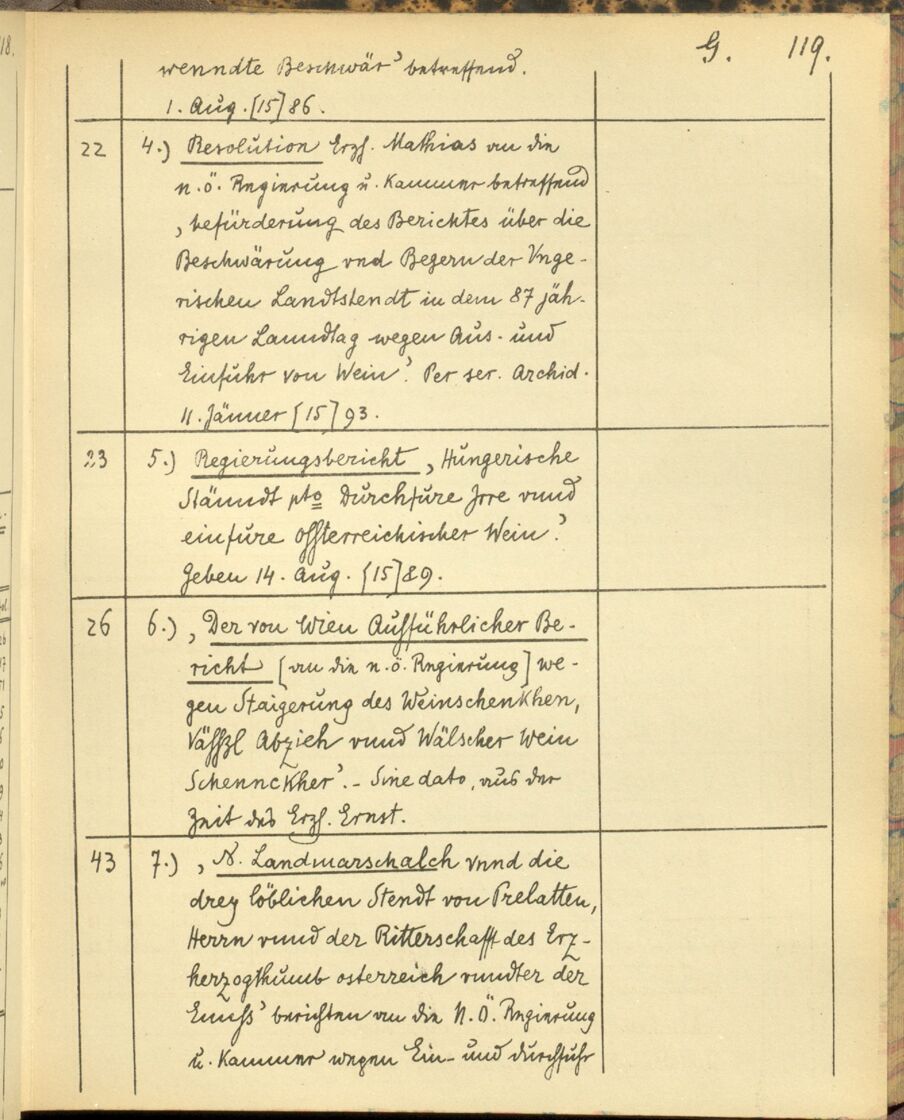 G. 119.
wenndte Beschwär' betreffend.
1. Aug. [15]86.
22 4.) Resolution Erzh. Mathias an die
n.ö. Regierung u. Kammer betreffend
‚befürderung des Berichtes über die
Beschwärung vnd Begern der Unge-
rischen Landtstendt in dem 87 jäh-
rigen Lanndtag wegen Aus- und
Einfuhr von Wein'. Per ser. Archid.
11. Jänner [15]93.
23 5.) Regierungsbericht ‚Hungerische
Stänndt pto Durchfure Irre vnnd
einfure össterreichischer Wein'.
Geben 14. Aug. [15]89.
26 6.) ‚Der von Wien Ausführlicher Be-
richt [an die n.ö. Regierung] we-
gen Staigerung des Weinschenkhen,
Vässzl Abzieh vnnd Wälscher Wein
Schennckher'. - Sine dato, aus der
Zeit des Erzh. Ernst.
43 7.) ‚N. Landmarschalch vnnd die
drey löblichen Stendt von Prelatten,
Herrn vnnd der Ritterschafft des Erz-
herzogthumb osterreich vnndter der
Ennss' berichten an die N.Ö. Regierung
u. Kammer wegen Ein- und Durchfuhr